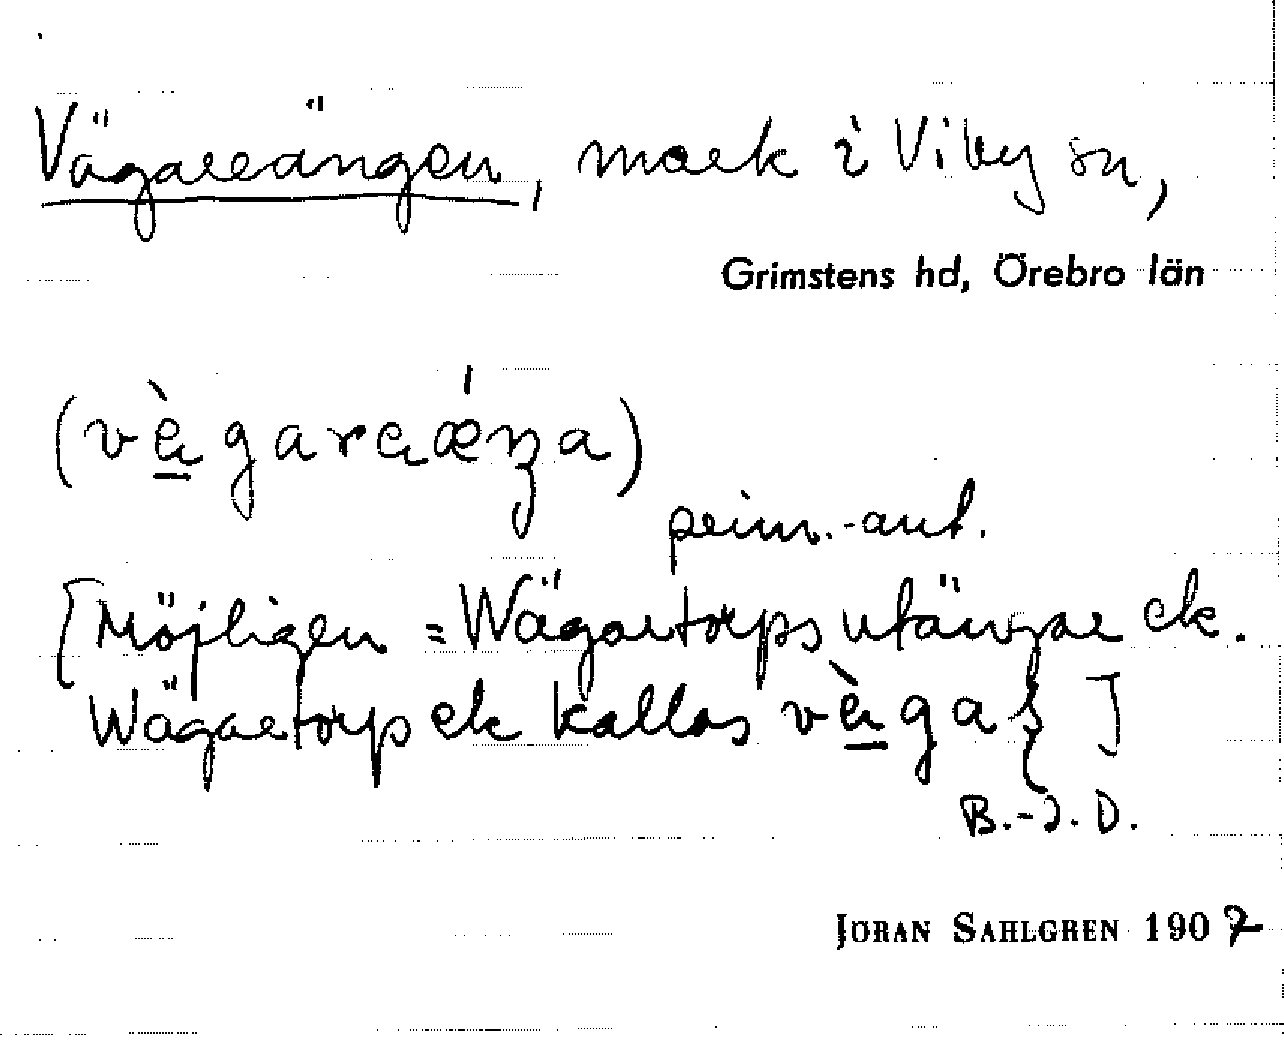 Vägareängen, mark i Viby sn,
Grimstens hd, Örebro län
prim.-ant.
[Möjligen = Wägartorps utängar ek.
Wägartorp ek kallas
B.-J. D.
JÖRAN SAHLGREN 1907